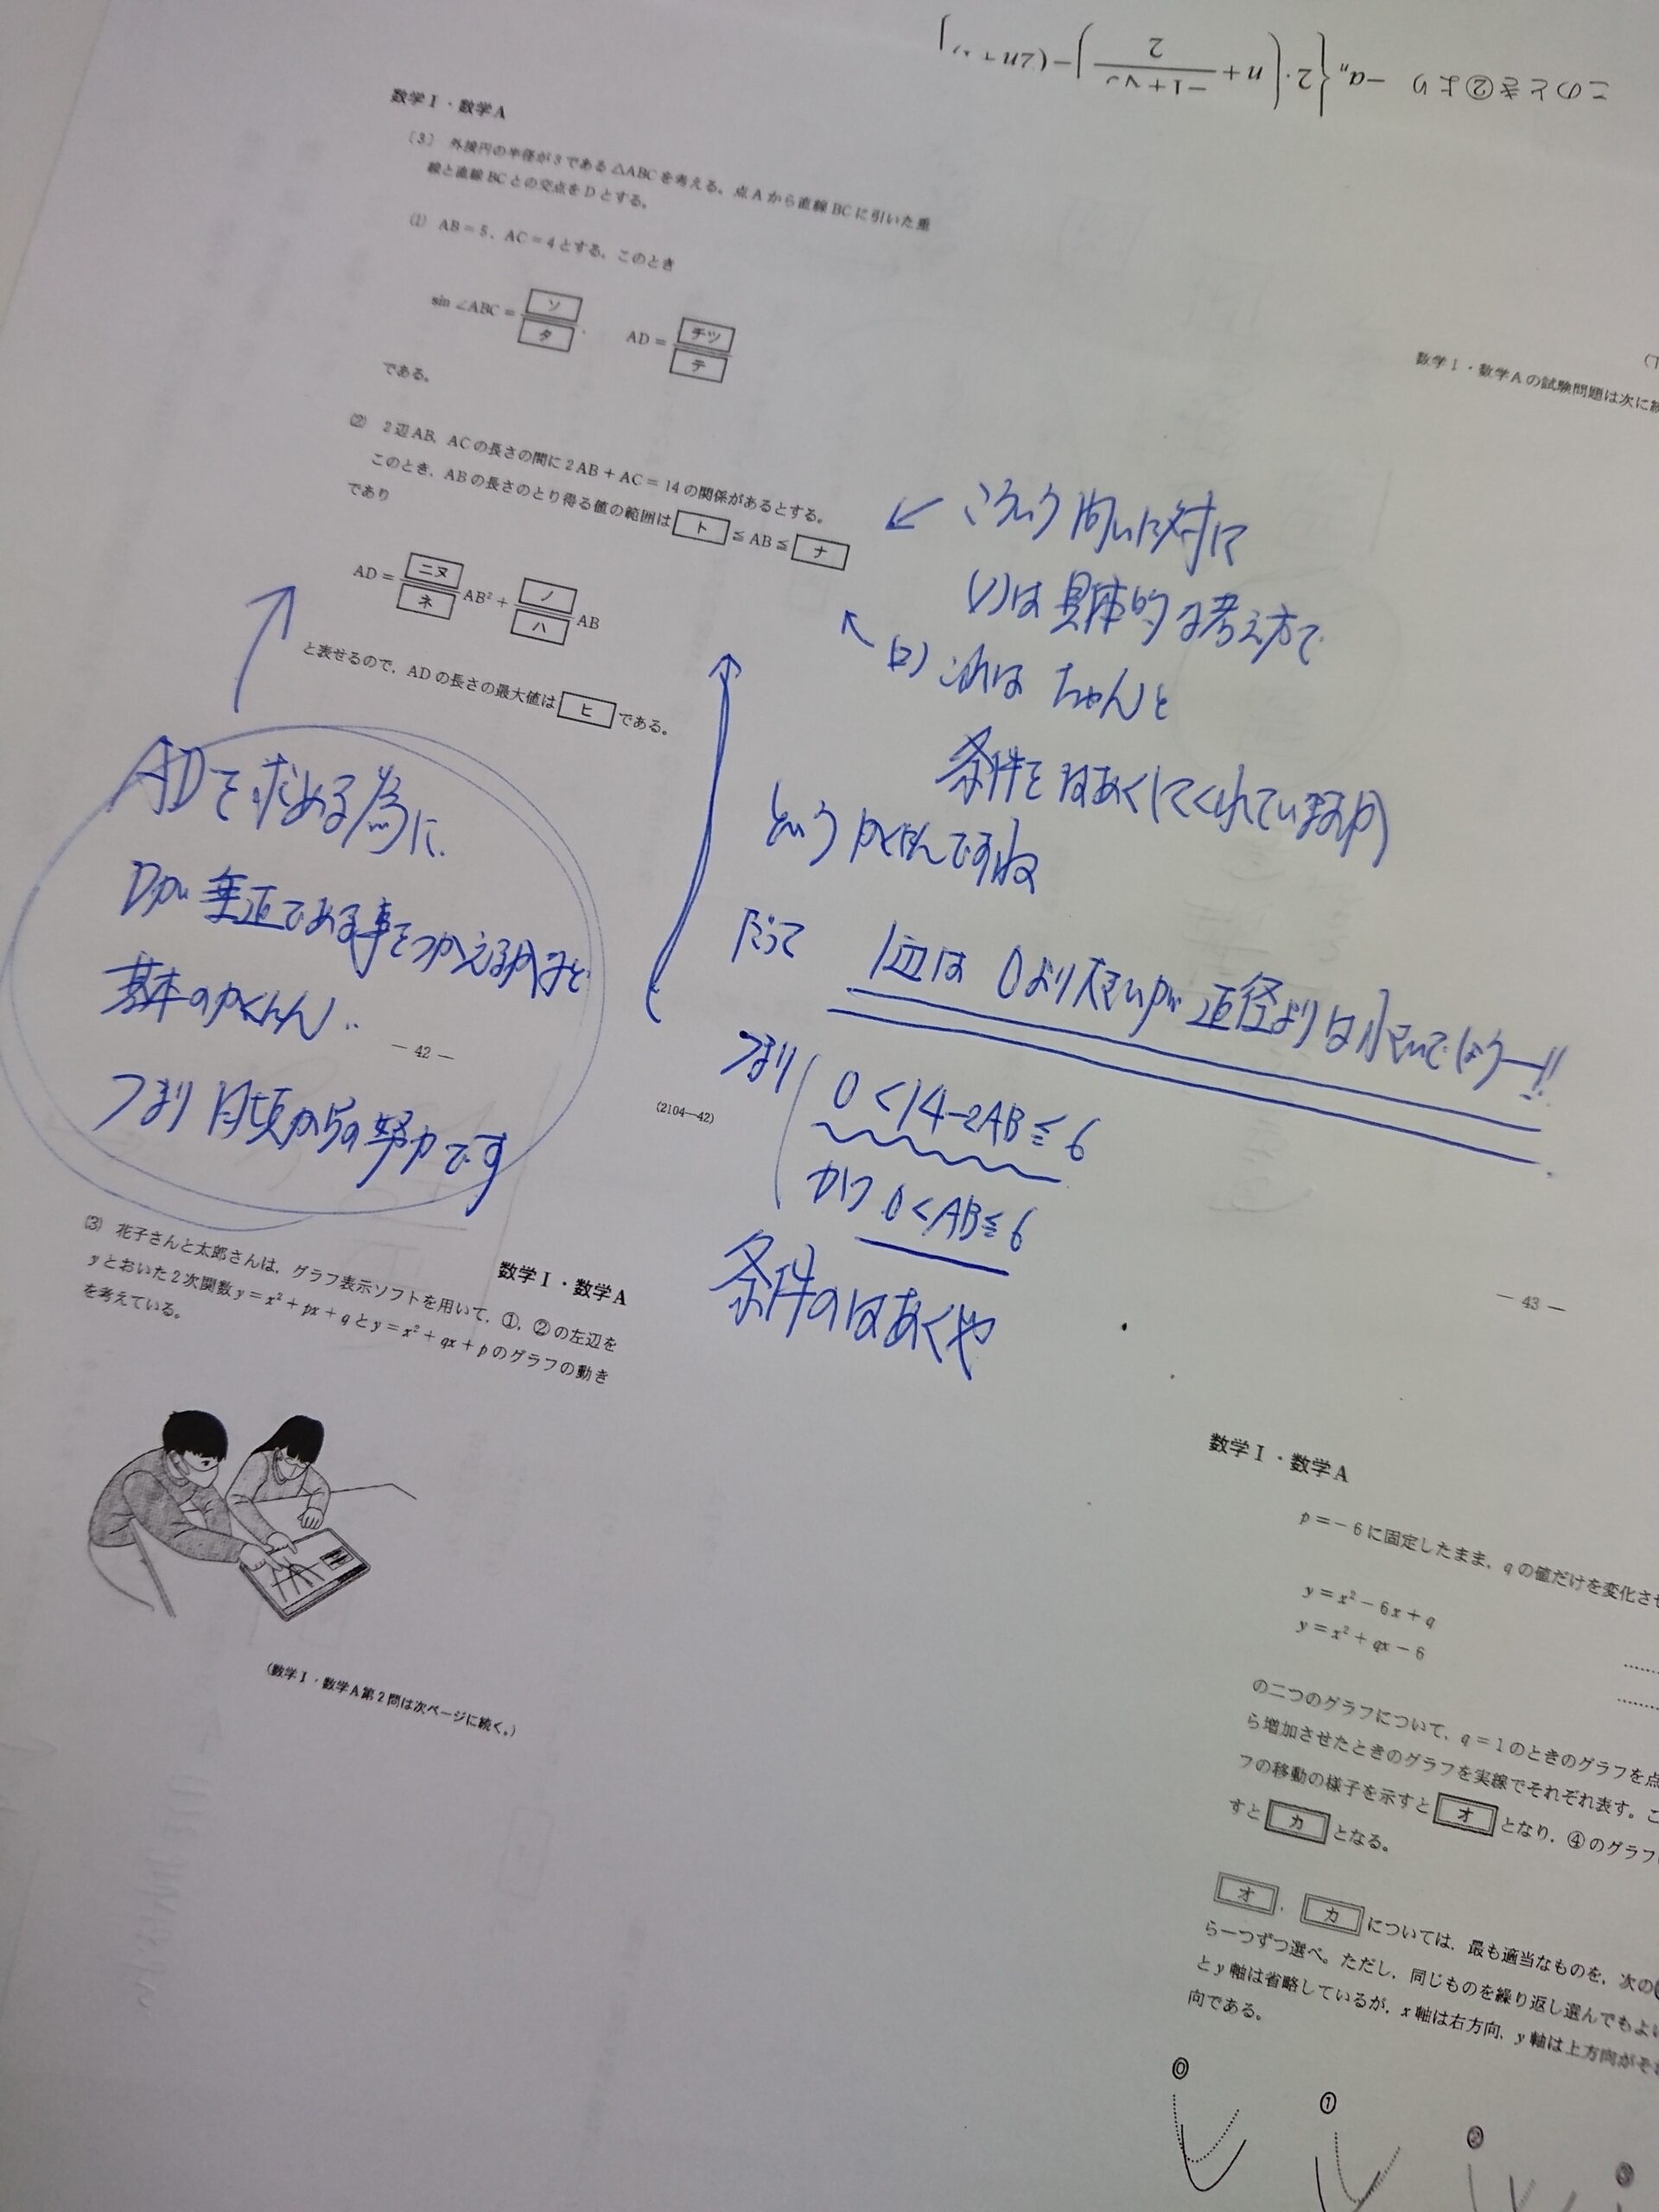 このとき②より
数学Ⅰ・数学A
〔3〕 外接円の半径が3である△ABCを考える。点Aから直線BCに引いた垂
線と直線BCとの交点をDとする。
(1) AB=5, AC=4とする。このとき
sin∠ABC=ソ/タ, AD=チツ/テ
である。
(2) 2辺AB, ACの長さの間に2AB+AC=14の関係があるとする。
このとき, ABの長さのとり得る値の範囲は ト ≦AB≦ ナ
であり
AD=ニヌ/ネ AB²+ノ/ハ AB
と表せるので, ADの長さの最大値は ヒ である。
← こういう問いに対して
(1)は具体的な考え方で
(2)これは ちゃんと
条件をはあくしてくれていますか
という かくにんですね
だって 1辺は 0より大きいが 直径よりは小さいでしょうー!!
つまり 0<14-2AB≦6
かつ 0<AB≦6
条件のはあくや
ADを求める為に
Dが垂直である事をつかえるかなど
基本のかくにん..
つまり 日頃からの努力です
— 42 —
(2104—42)
数学Ⅰ・数学Aの試験問題は次に
— 43 —
数学Ⅰ・数学A
(3) 花子さんと太郎さんは, グラフ表示ソフトを用いて, ①, ②の左辺を
yとおいた2次関数y=x²+px+qとy=x²+qx+pのグラフの動き
を考えている。
(数学Ⅰ・数学A第2問は次ページに続く。)
数学Ⅰ・数学A
p=-6に固定したまま, qの値だけを変化させ
y=x²-6x+q
y=x²+qx-6
の二つのグラフについて, q=1のときのグラフを点
ら増加させたときのグラフを実線でそれぞれ表す。こ
フの移動の様子を示すと オ となり, ④のグラフ
すと カ となる。
オ , カ については, 最も適当なものを, 次の
ら一つずつ選べ。ただし, 同じものを繰り返し選んでもよい
とy軸は省略しているが, x軸は右方向, y軸は上方向がそ
向である。
⓪ ① ② ③